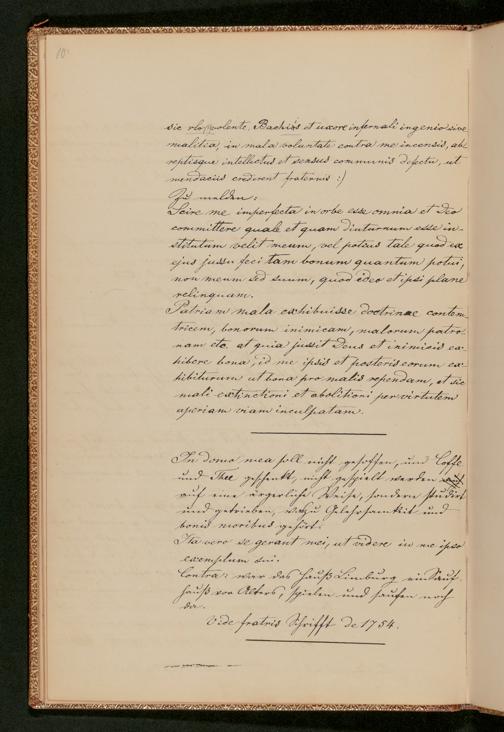 10.
sic volente, Bachiis et uxore infernali ingenio sive
malitia, in mala voluntate contra me incensis, ab
reptisque intellectus et sensus communis defectu, ut
mendaciis crederent fraternis :)
Zu melden:
Scire me imperfecta in orbe esse omnia et Deo
committere quale et quam diuturnum esse in-
stitutum velit meum, vel potius tale quod ex
ejus jussu feci tam bonum quantum potui,
non meum sed suum, quod ideo et ipsi plane
relinquam.
Patriam mala exhibuisse doctrinae contem-
tricem, bonorum inimicam, malorum patro-
nam etc. at quia jussit Deus et inimicis ex-
hibere bona, id me ipsis et posteris eorum ex-
hibiturum ut bona pro malis rependam, et sic
mali extinctioni et abolitioni per virtutem
aperiam viam inculpatam.
In domo mea soll nicht gesoffen, und Coffe
und Thee geschenkt, nicht gespielt werden
auf eine ärgerliche Weise, sondern studirt
und getrieben, wozu Gelehrsamkeit und
bonis moribus gehört.
Ita vero se gerant mei, ut videre in me ipso
exemplum sui.
Contra: war das Hauß Limburg ein Sauf-
hauß von Alters, spielen und saufen noch
da.
Vide fratris Schrifft de 1754.